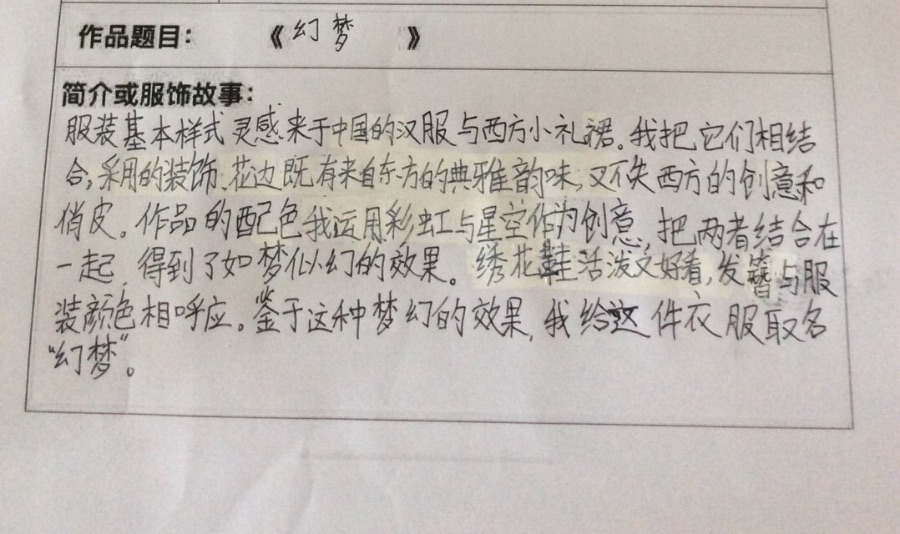 作品题目：《幻梦》
简介或服饰故事：
服装基本样式灵感来于中国的汉服与西方小礼裙。我把它们相结
合，采用的装饰、花边既有来自东方的典雅韵味，又不失西方的创意和
俏皮。作品的配色我运用彩虹与星空作为创意，把两者结合在
一起，得到了如梦似幻的效果。绣花鞋活泼又好看，发簪与服
装颜色相呼应。鉴于这种梦幻的效果，我给这件衣服取名
“幻梦”。